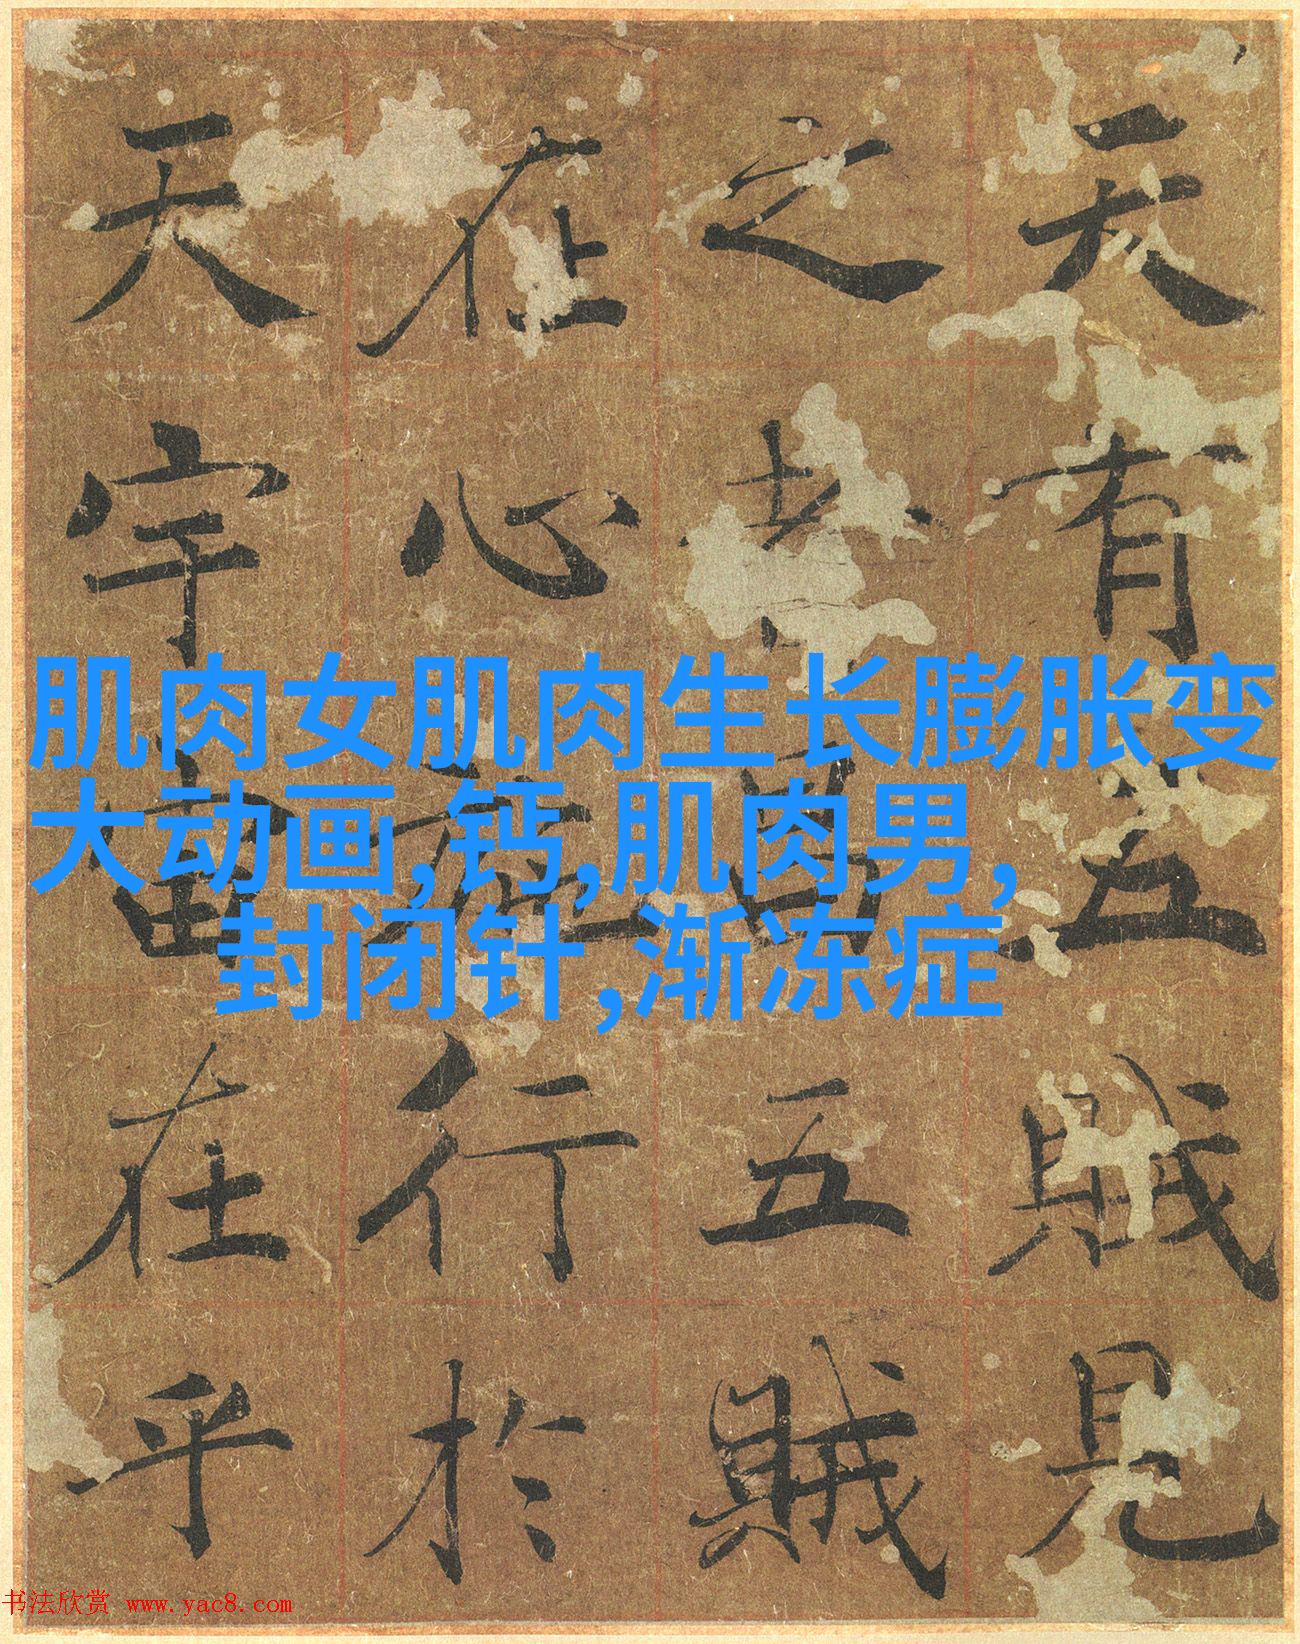 天有五賊見
之者昌五賊
在心施行於
天宇宙在乎
肌肉女肌肉生长膨胀变
大动画,钙,肌肉男,
封闭针,渐冻症
书法欣赏 www.yac8.com